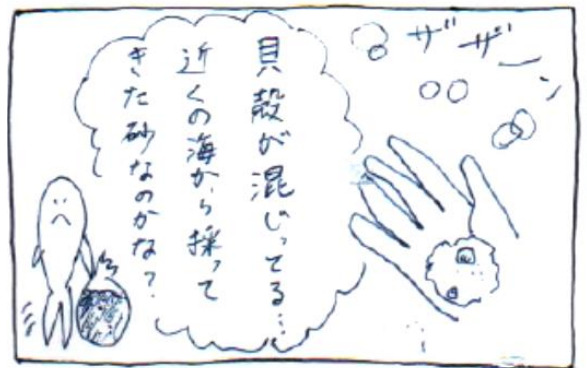 ザザーン
貝殻が混じってる…
近くの海から採って
きた砂なのかな？